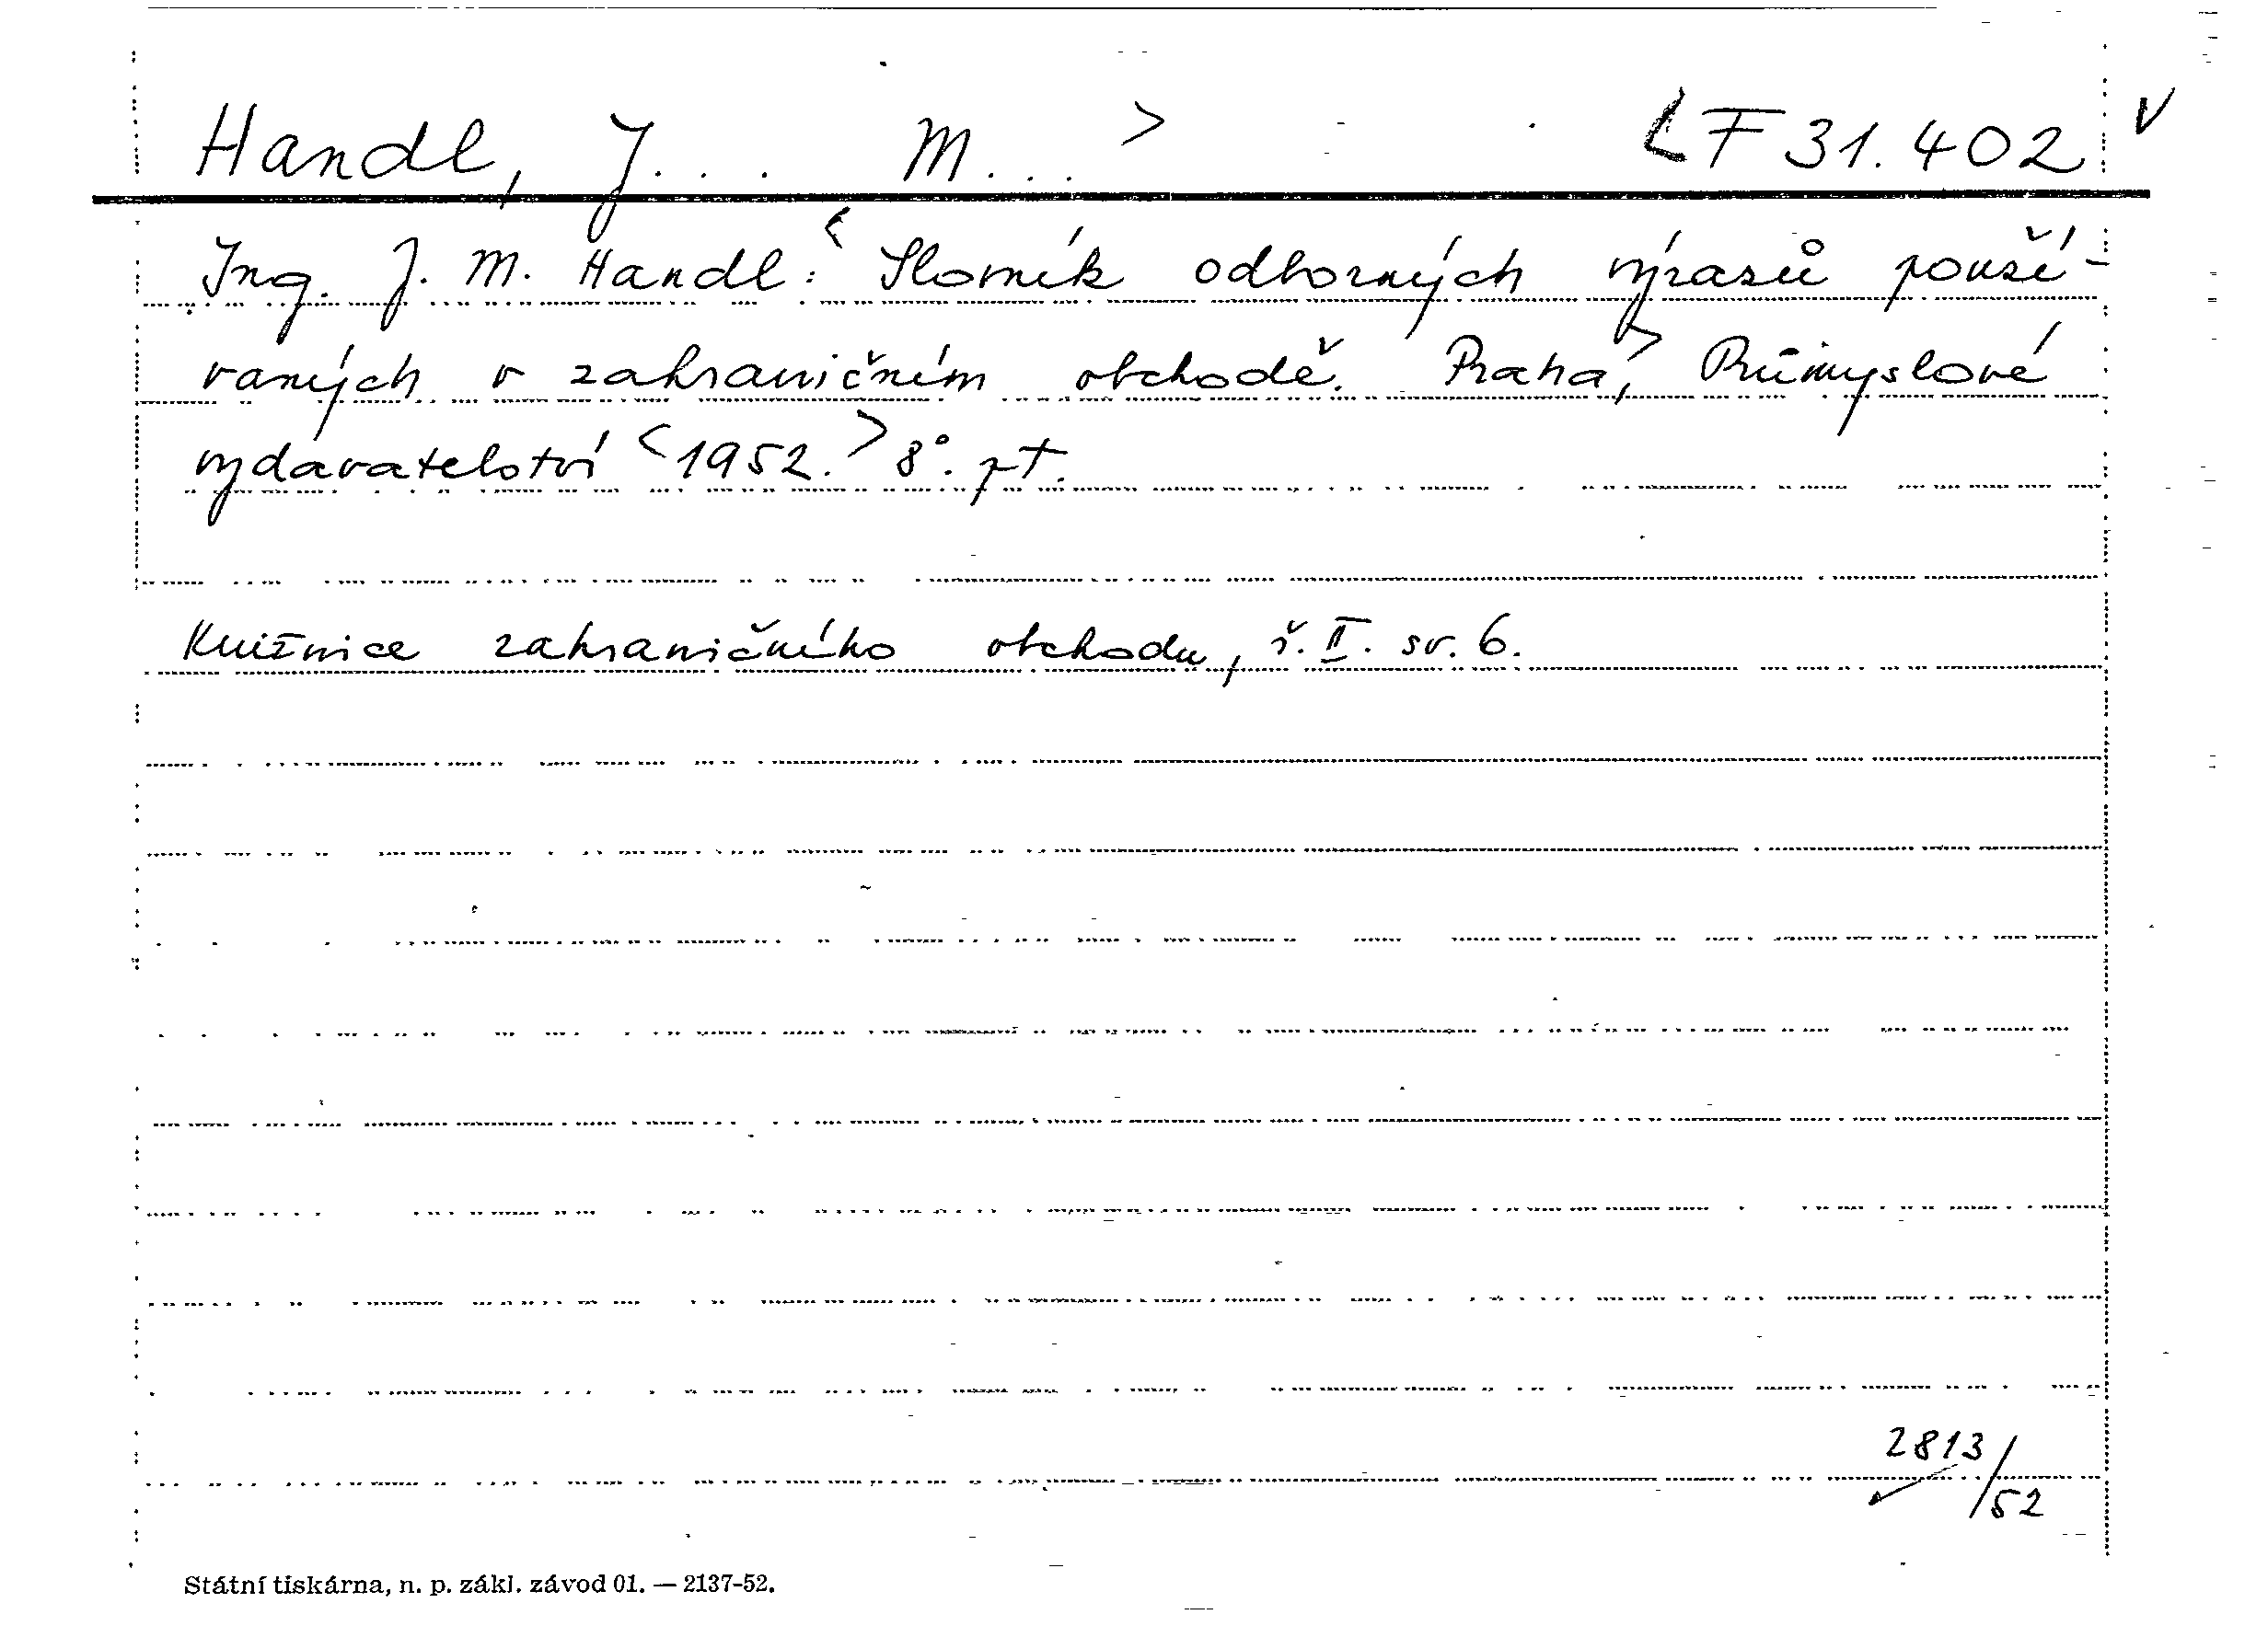 Handl, J... M... > < F 31.402 v
Ing. J. M. Handl: < Slovník odborných výrazů použí-
vaných v zahraničním obchodě. Praha, > Průmyslové
vydavatelství <1952.> 8°. pt.
Knižnice zahraničního obchodu, ř. II. sv. 6.
2813/52
Státní tiskárna, n. p. zákl. závod 01. — 2137-52.